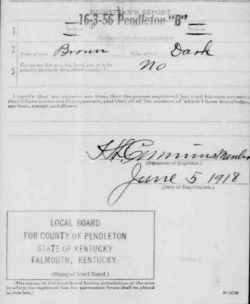 REGISTRAR'S REPORT
16-3-56 Pendleton "B"
1
2
Color of eyes Brown Color of hair Dark
3
No
I certify that my answers are true; that the person registered has read his own answers;
that I have witnessed his signature, and that all of his answers of which I have knowledge
are true, except as follows:
Member
(Signature of Registrar.)
June 5 1918
(Date of Registration.)
LOCAL BOARD
FOR COUNTY OF PENDLETON
STATE OF KENTUCKY
FALMOUTH, KENTUCKY.
(Stamp of Local Board.)
(The stamp of the Local Board having jurisdiction of the area
in which the registrant has his permanent home shall be placed
in this box.)